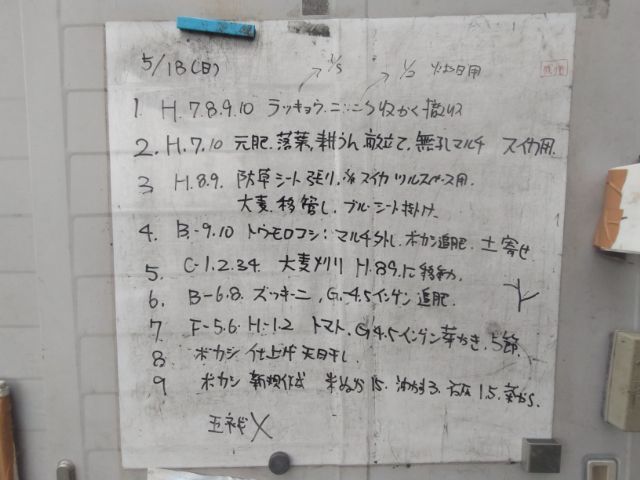 5/18(日)
1 H.7.8.9.10 ラッキョウ.ニンニク収かく
2. H.7.10 元肥.落葉,耕うん,畝立て,無孔マルチ スイカ用.
3 H.8.9. 防草シート張り. スイカツルスペース用.
大麦.移管し.ブルーシート掛け.
4. B-9.10 トウモロコシ:マルチ外し.ボカシ追肥. 土寄せ
5. C-1.2.3.4. 大麦刈り H.8.9.に移動.
6. B-6.8. ズッキーニ, G.4.5インゲン追肥.
7 F-5.6 H-1.2 トマト. G4.5インゲン芽かき.
8 ボカシ仕上げ天日干し.
9 ボカシ新規作成 米ぬか15. 油かす3. 1.5.